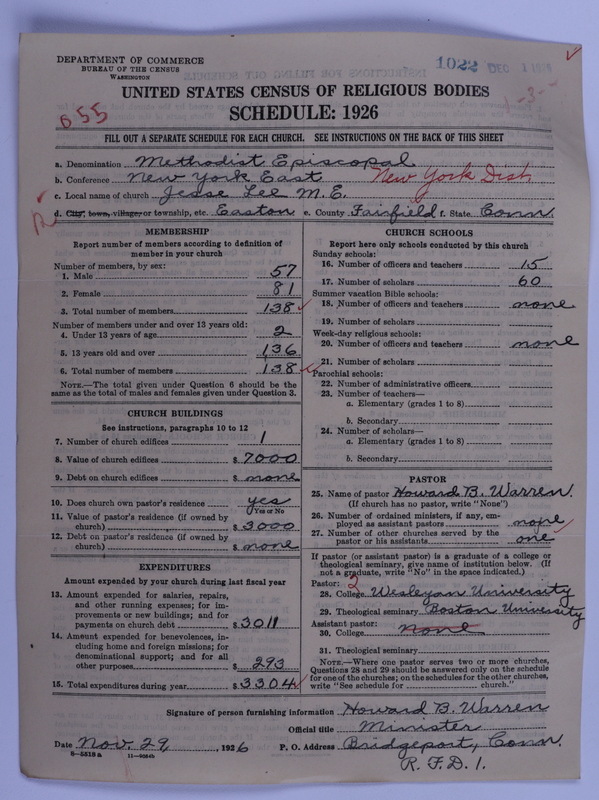 DEPARTMENT OF COMMERCE
BUREAU OF THE CENSUS
WASHINGTON
1022 DEC 1 1926
UNITED STATES CENSUS OF RELIGIOUS BODIES
SCHEDULE: 1926
655
FILL OUT A SEPARATE SCHEDULE FOR EACH CHURCH. SEE INSTRUCTIONS ON THE BACK OF THIS SHEET
a. Denomination Methodist Episcopal
b. Conference New York East New York Dist.
c. Local name of church Jesse Lee M.E.
d. City, town, village, or township, etc. Easton e. County Fairfield f. State Conn.
MEMBERSHIP
Report number of members according to definition of
member in your church
Number of members, by sex:
1. Male 57
2. Female 81
3. Total number of members 138
Number of members under and over 13 years old:
4. Under 13 years of age 2
5. 13 years old and over 136
6. Total number of members 138
NOTE.—The total given under Question 6 should be the
same as the total of males and females given under Question 3.
CHURCH BUILDINGS
See instructions, paragraphs 10 to 12
7. Number of church edifices 1
8. Value of church edifices $ 7000
9. Debt on church edifices $ none
10. Does church own pastor's residence? yes
Yes or No
11. Value of pastor's residence (if owned by
church) $ 3000
12. Debt on pastor's residence (if owned by
church) $ none
EXPENDITURES
Amount expended by your church during last fiscal year
13. Amount expended for salaries, repairs,
and other running expenses; for im-
provements or new buildings; and for
payments on church debt $ 3011
14. Amount expended for benevolences, in-
cluding home and foreign missions; for
denominational support; and for all
other purposes $ 293
15. Total expenditures during year $ 3304
CHURCH SCHOOLS
Report here only schools conducted by this church
Sunday schools:
16. Number of officers and teachers 15
17. Number of scholars 60
Summer vacation Bible schools:
18. Number of officers and teachers none
19. Number of scholars
Week-day religious schools:
20. Number of officers and teachers none
21. Number of scholars
Parochial schools:
22. Number of administrative officers
23. Number of teachers—
a. Elementary (grades 1 to 8)
b. Secondary
24. Number of scholars—
a. Elementary (grades 1 to 8)
b. Secondary
PASTOR
25. Name of pastor Howard B. Warren.
(If church has no pastor, write "None")
26. Number of ordained ministers, if any, em-
ployed as assistant pastors none
27. Number of other churches served by the
pastor or his assistants one
If pastor (or assistant pastor) is a graduate of a college or
theological seminary, give name of institution below. (If
not a graduate, write "No" in the space indicated.)
Pastor: 2
28. College Wesleyan University
29. Theological seminary Boston University
Assistant pastor:
30. College none
31. Theological seminary
NOTE.—Where one pastor serves two or more churches,
Questions 28 and 29 should be answered only on the schedule
for one of the churches; on the schedules for the other churches,
write "See schedule for church."
Signature of person furnishing information Howard B. Warren
Official title Minister
Date Nov. 29, 1926 P. O. Address Bridgeport, Conn.
R.F.D. 1.